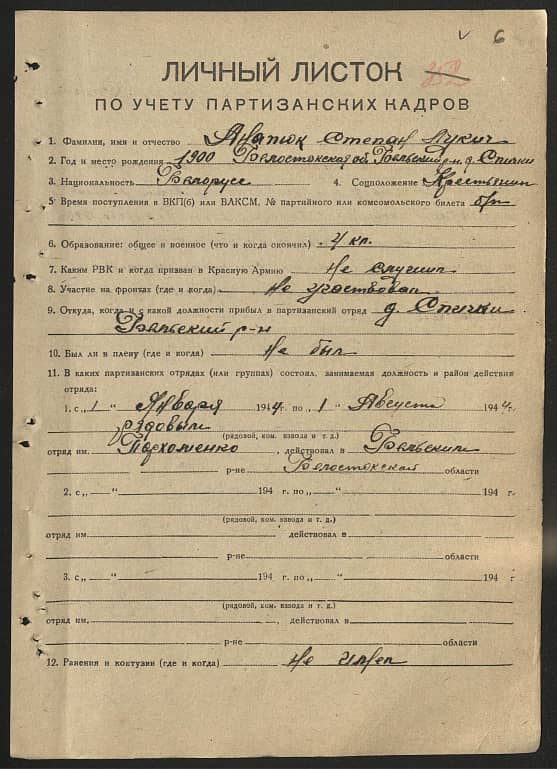 6
ЛИЧНЫЙ ЛИСТОК 252
ПО УЧЕТУ ПАРТИЗАНСКИХ КАДРОВ
1. Фамилия, имя и отчество Анатюк Степан Лукич
2. Год и место рождения 1900 Белостокская об. Бельский р-н д. Спички
3. Национальность Белорусс 4. Соцположение Крестьянин
5. Время поступления в ВКП(б) или ВЛКСМ, № партийного или комсомольского билета б/п
6. Образование: общее и военное (что и когда окончил) 4 кл.
7. Каким РВК и когда призван в Красную Армию Не служил
8. Участие на фронтах (где и когда) Не участвовал
9. Откуда, когда и с какой должности прибыл в партизанский отряд д. Спички
Бельский р-н
10. Был ли в плену (где и когда) Не был
11. В каких партизанских отрядах (или группах) состоял, занимаемая должность и район действия
отряда:
1. с „1“ Января 1944 г. по „1“ Августа 1944 г.
рядовым
(рядовой, ком. взвода и т. д.)
отряд им. Пархоменко, действовал в Бельским
р-не Белостокской области
2. с „ “ 194 г. по „ “ 194 г.
(рядовой, ком. взвода и т. д.)
отряд им. действовал в
р-не области
3. с „ “ 194 г. по „ “ 194 г
(рядовой, ком. взвода и т. д.)
отряд им. , действовал в
р-не области
12. Ранения и контузии (где и когда) Не имел